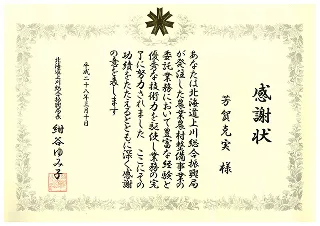 感謝状
芳賀克実 様
あなたは北海道上川総合振興局
が発注した農業農村整備事業の
委託業務において豊富な経験と
優秀な技術力を駆使し業務の完
了に努力されました ここにその
功績をたたえるとともに深く感謝
の意を表します
平成二十八年三月十日
北海道上川総合振興局長
紺谷ゆみ子